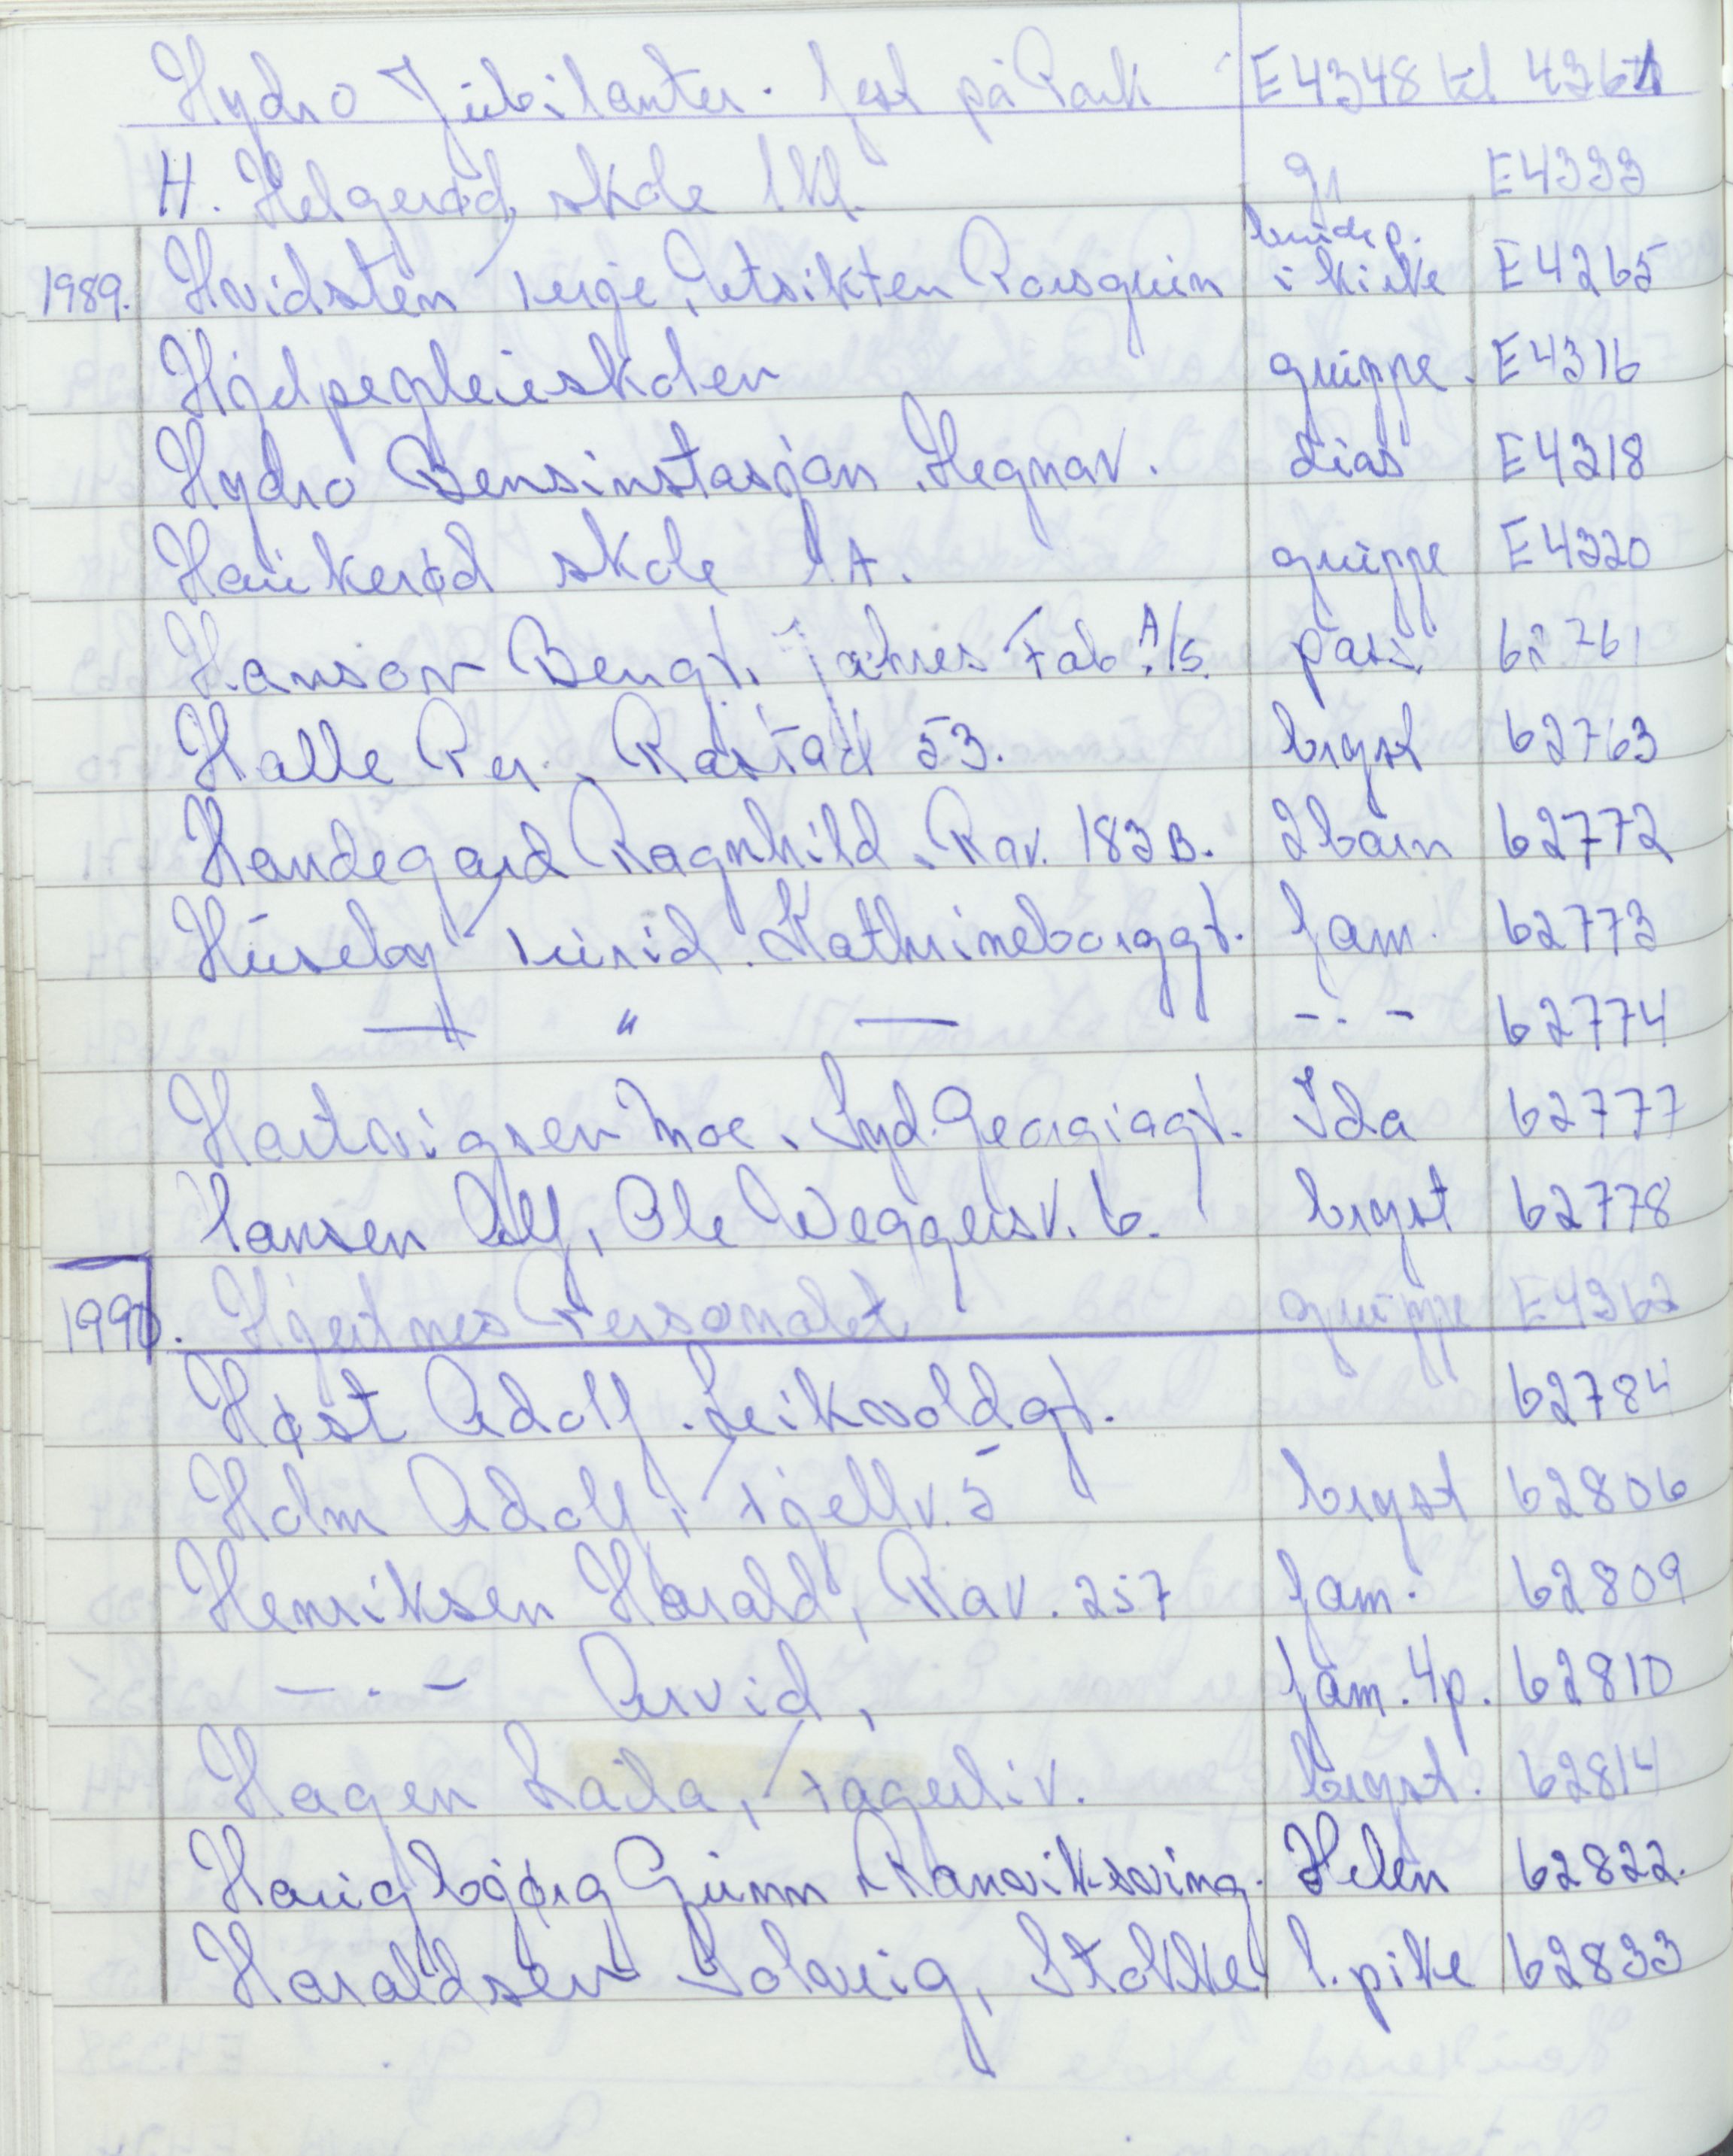 Hydro Jubilanter. fest på Park E4348 til 4361
H. Helgerød skole 1kl. gr E4333
brudep.
1989. Hvidsten Terje, Utsikten Porsgrunn i kirke E4265
Hjelpepleieskolen gruppe. E4316
Hydro Bensinstasjon. Hegnav. dias E4318
Haukerød skole 1A. gruppe E4320
Hanson Bengt. Jahres Fab. A/S. pass 62761
Halle Per. Rastad 53. bryst 62763
Handegard Ragnhild. Rav. 183B. 2barn 62772
Huseby Turid. Kathrineborggt. fam. 62773
— " — -.- 62774
Hartvigsen Moe. Syd.Georgiagt. Ida 62777
Hansen Alf, Ole Weggersv. 6. bryst 62778
1990. Hjertnes Personalet gruppe E4362
Høst Adolf. Leikvoldgt. 62784
Holm Adolf, Fjellv. 5 bryst 62806
Henriksen Harald, Rav. 257 fam. 62809
-.- Arvid, fam. 4p. 62810
Hagen Laila, Fagerliv. bryst. 62814
Haugbjørg Gunn Ranviksving. Helen 62822.
Haraldsen Solveig, Stokke l.pike 62833